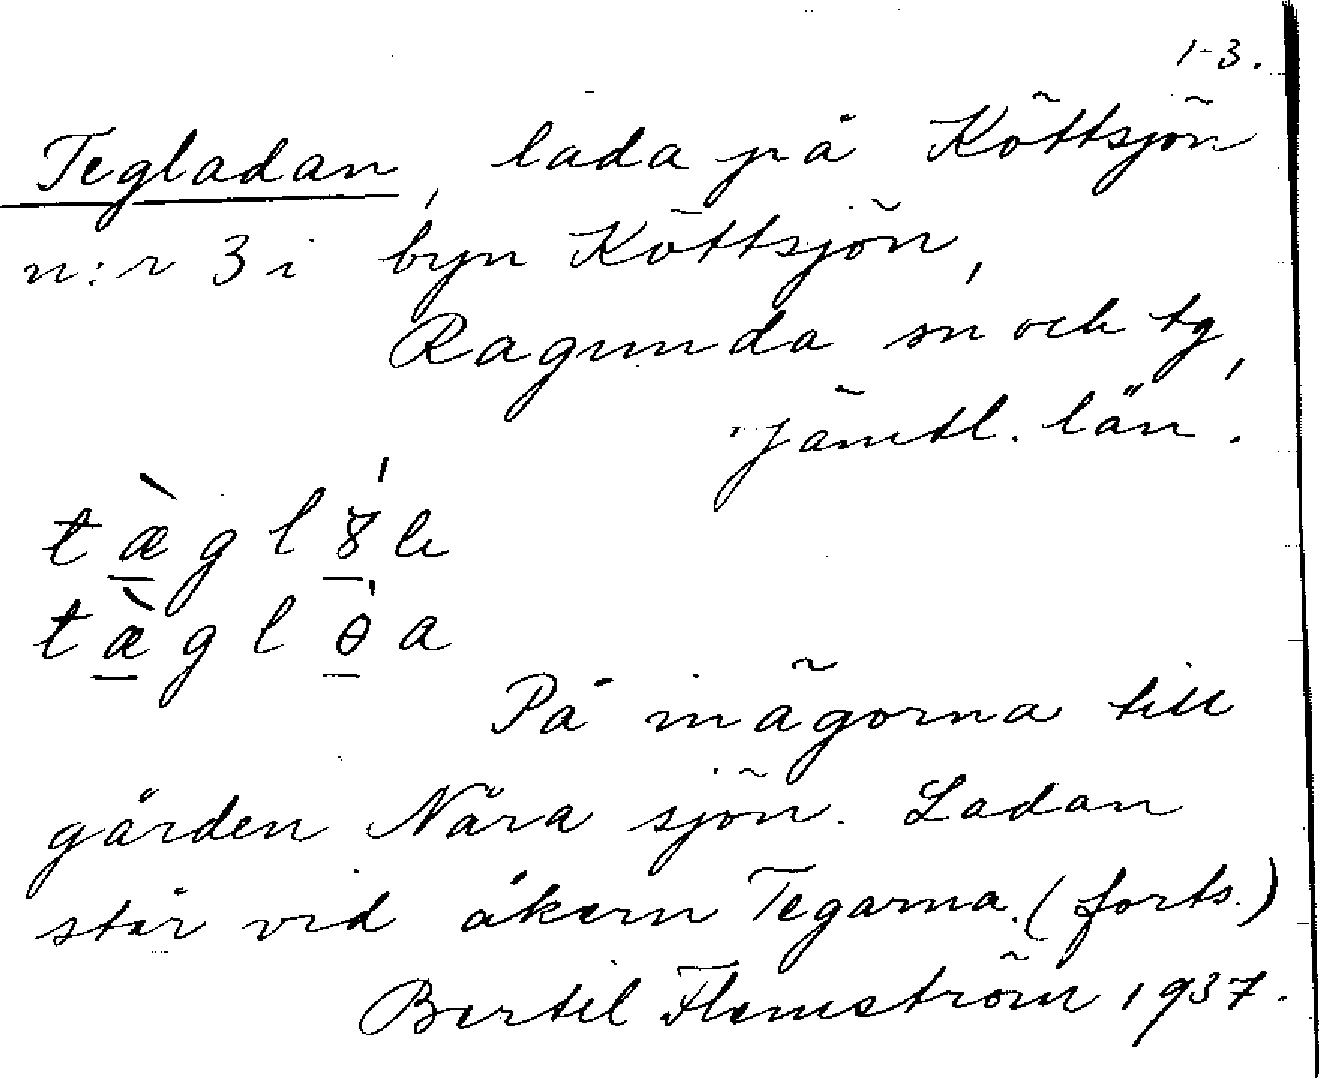 1-3.
Tegladan, lada på Köttsjön
n:r 3 i byn Köttsjön,
Ragunda sn och tg,
Jämtl. län.
tæ̀gl
tæ̀glɵ́a
På inägorna till
gården Nära sjön. Ladan
står vid åkern Tegarna. (forts.)
Bertil Flemström 1937.